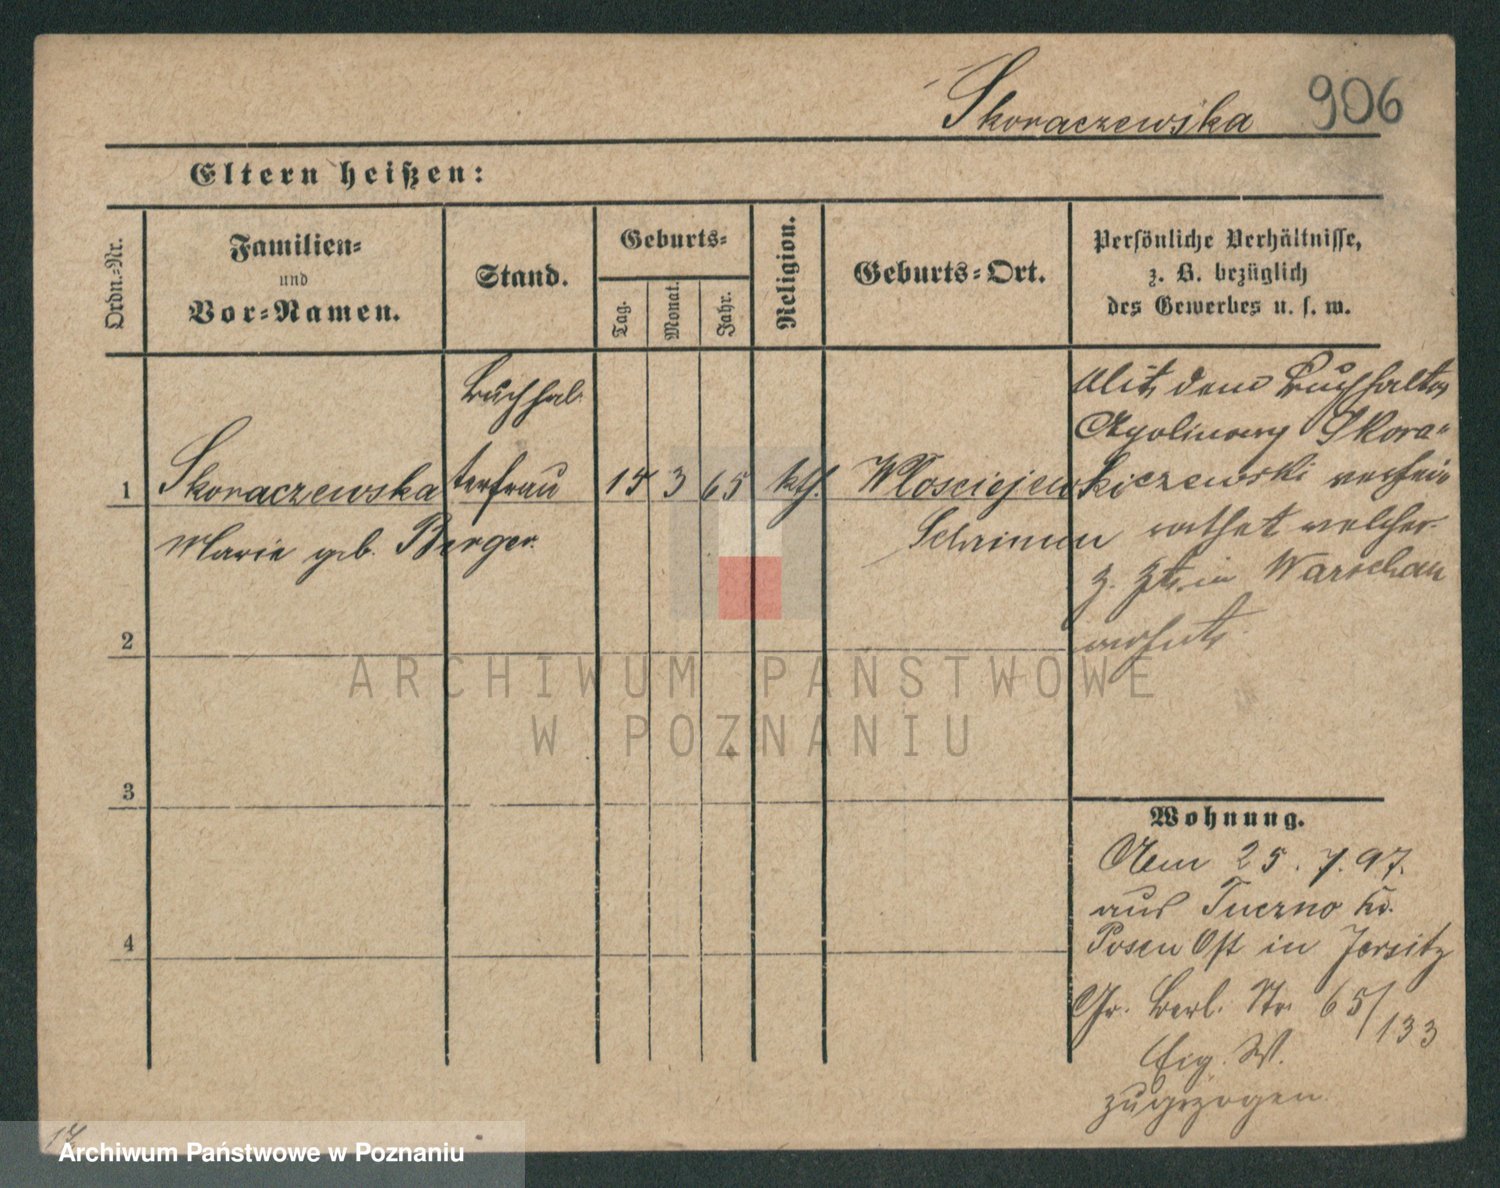 Skoraczewska 906
Eltern heißen:
Ordn.-Nr.
Familien-
und
Vor-Namen.
Stand.
Geburts-
Tag.
Monat.
Jahr.
Religion.
Geburts-Ort.
Persönliche Verhältnisse,
z. B. bezüglich
des Gewerbes u. s. w.
1
Skoraczewska
Marie geb. Berger
Buchhal-
terfrau
15 3 65 kth. Wlosciejewki
Schrimm
Mit dem Buchhalter
Apolinary Skora-
czewski verhei-
rathet welcher
z. Zt. in Warschau
wohnt.
2
3
4
Wohnung.
Am 25. 7. 97.
aus Tuerno Kr.
Posen Ost in Jersitz
Gr. Berl. Str. 65/133
Eig. W.
zugezogen
17
ARCHIWUM PAŃSTWOWE
W POZNANIU
Archiwum Państwowe w Poznaniu